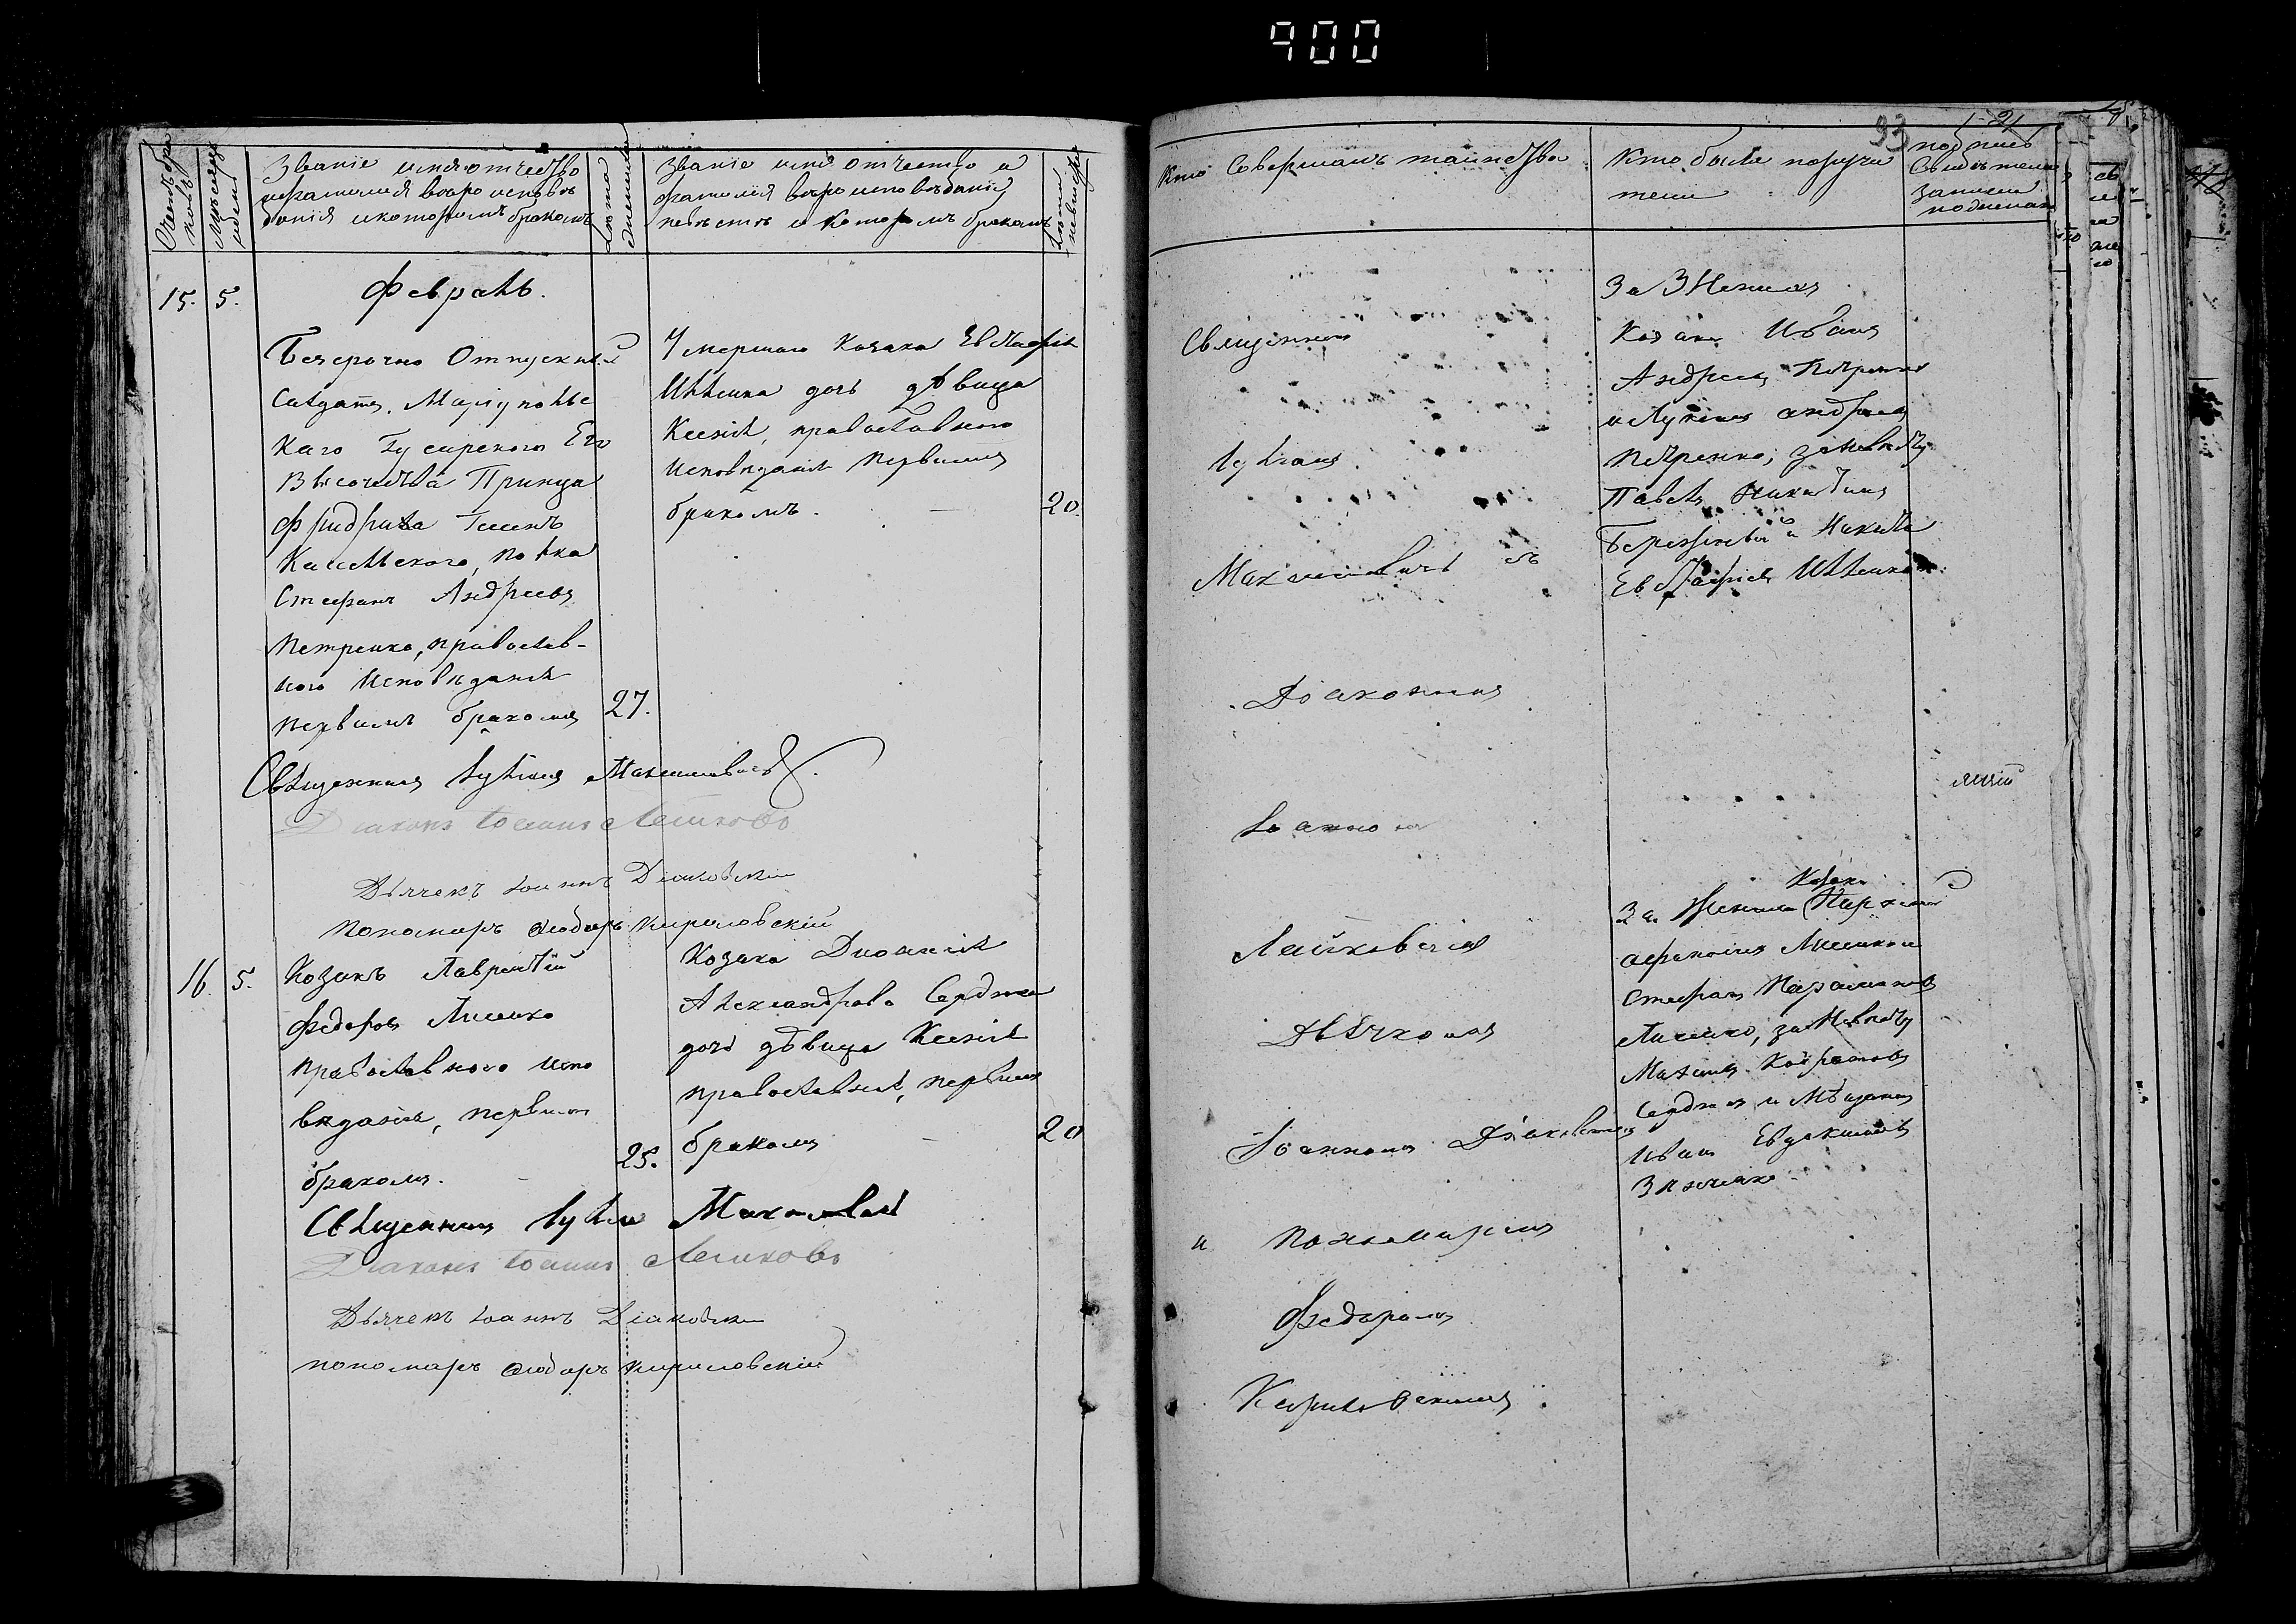 900
Счетъ бра
ковъ
Мѣсяцъ
и день
Званіе имя отчество
и фамилія вѣро исповѣ
данія и которымъ бракомъ
Лѣта
жениха
Званіе имя отчество и
фамилія вѣро исповѣданія
невѣстъ и которымъ бракомъ
Лѣта
невѣсты
15. 5. Февраль.
Безсрочно Отпускный
Солдатъ, Маріуполь
скаго Гусарского Его
Высочества Принца
Фридриха Гессенъ
Кассельского, полка
Стефанъ Андреевъ
Петренко, православ-
ного Исповѣданія
первымъ бракомъ 27.
Умершаго Козака Евстафія
Ильенка дочь дѣвица
Ксенія, православного
Исповѣданія первымъ
бракомъ. 20.
Священникъ Іуліанъ Максимовичъ
Діаконъ Іоаннъ
Дьячекъ Іоаннъ Діаковскій
Пономарь Ѳеодоръ Кириловскій
16. 5. Козакъ Лаврентій
Федоровъ Лисенко
православного испо
вѣданія, первымъ
бракомъ. 25.
Козака Діонисія
Александрова Сердюка
дочь дѣвица Ксенія
православная, первымъ
бракомъ 20
Священникъ Іуліанъ Максимовичъ
Діаконъ Іоаннъ
Дьячекъ Іоаннъ Діаковскій
пономарь Ѳеодоръ Кириловскій
93
Кто Совершалъ таинство
Кто были поручи
тели
подпись
Свидѣтелей
записи
по желанію
Священникъ
Іуліанъ
Максимовичъ съ
Діакономъ
Іоанномъ
Дьячкомъ
Іоанномъ Діаковскимъ
и Пономаремъ
Федоромъ
Кириловскимъ
За Жениха
Козаки Иванъ
Андреевъ Петренко
и Лукіанъ Андреевъ
Петренко; за невѣсту
Павелъ Никитинъ
и Никита
Евстафіевъ Ильенко
За Жениха Козаки
Лисенко и
Стефанъ
Лисенко, за Невѣсту
Максимъ
Сердюкъ и Мѣщанинъ
Иванъ Евдокимовъ